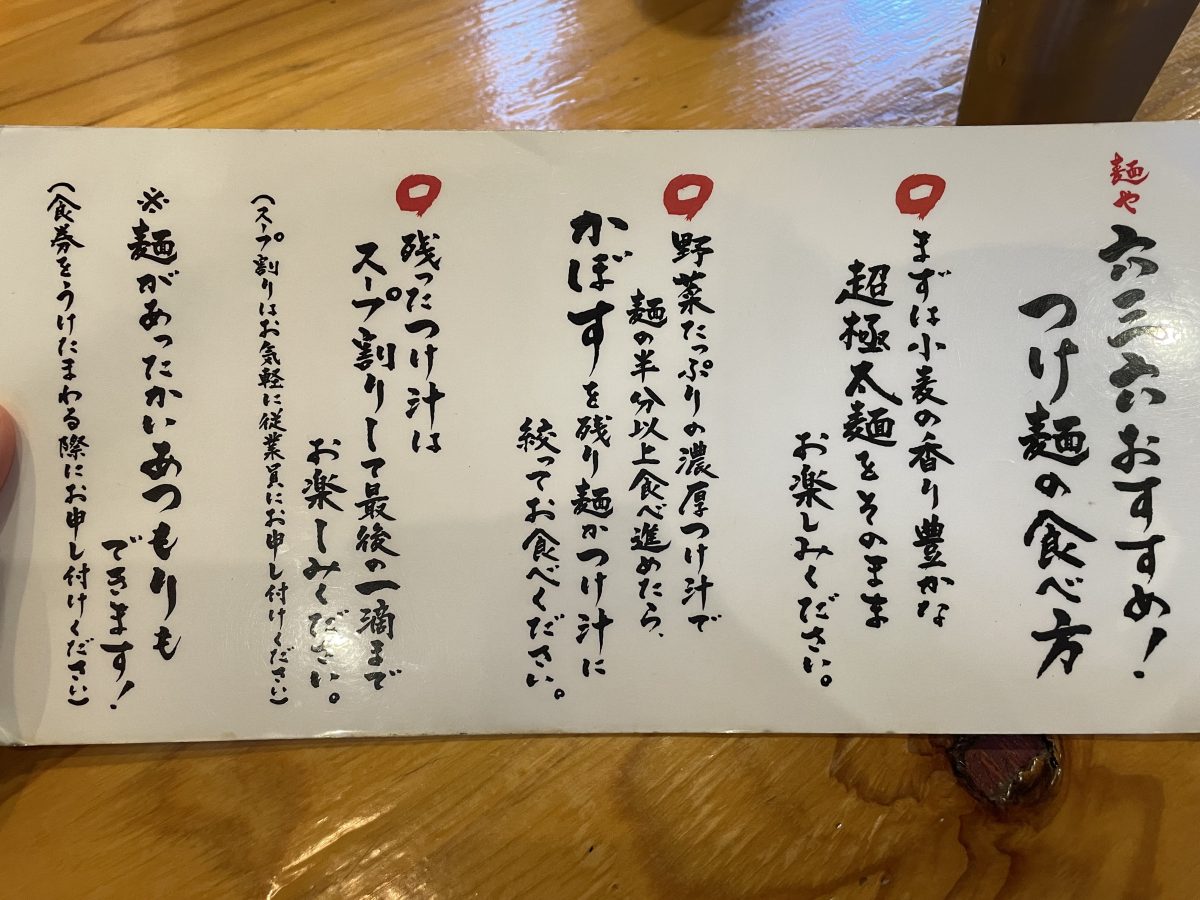 麺や六三六おすすめ!
つけ麺の食べ方
まずは小麦の香り豊かな
超極太麺をそのまま
お楽しみください。
野菜たっぷりの濃厚つけ汁で
麺の半分以上食べ進めたら、
かぼすを残り麺かつけ汁に
絞ってお食べください。
残ったつけ汁は
スープ割りして最後の一滴まで
お楽しみください。
(スープ割りはお気軽に従業員にお申し付けください)
※麺があったかいあつもりも
できます!
(食券をうけたまわる際にお申し付けください)